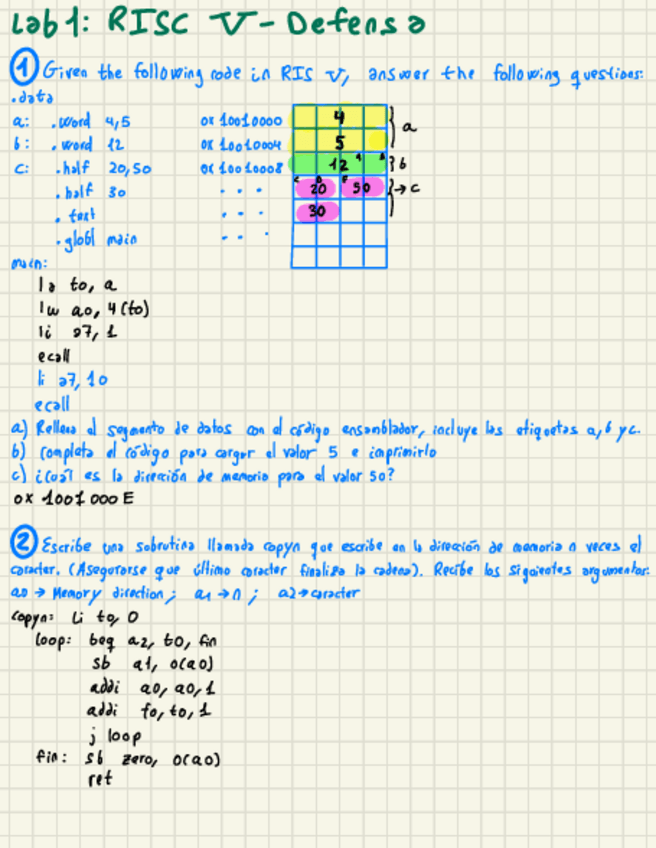 Lab 1: RISC V - Defensa
① Given the following code in RIS V, answer the following questions:
.data
a: .word 4,5 0x 10010000 4 a
b: .word 12 0x 10010004 5
c: .half 20,50 0x 10010008 12 A B b
.half 30 . . . C D 20 E 50 → c
. text . . . 30
.globl main . . .
main:
la to, a
lw ao, 4(to)
li a7, 1
ecall
li a7, 10
ecall
a) Rellena el segmento de datos con el código ensamblador, incluye las etiquetas a, b y c.
b) Completa el código para cargar el valor 5 e imprimirlo
c) ¿Cuál es la dirección de memoria para el valor 50?
0x 1001 000 E
② Escribe una sobrutina llamada copyn que escribe en la dirección de memoria n veces el
caracter. (Asegurarse que último caracter finaliza la cadena). Recibe los siguientes argumentos:
a0 → Memory direction ; a1 → n ; a2 → caracter
copyn: li to, 0
loop: beq a2, t0, fin
sb a1, 0(a0)
addi a0, a0, 1
addi to, to, 1
j loop
fin: sb zero, 0(a0)
ret